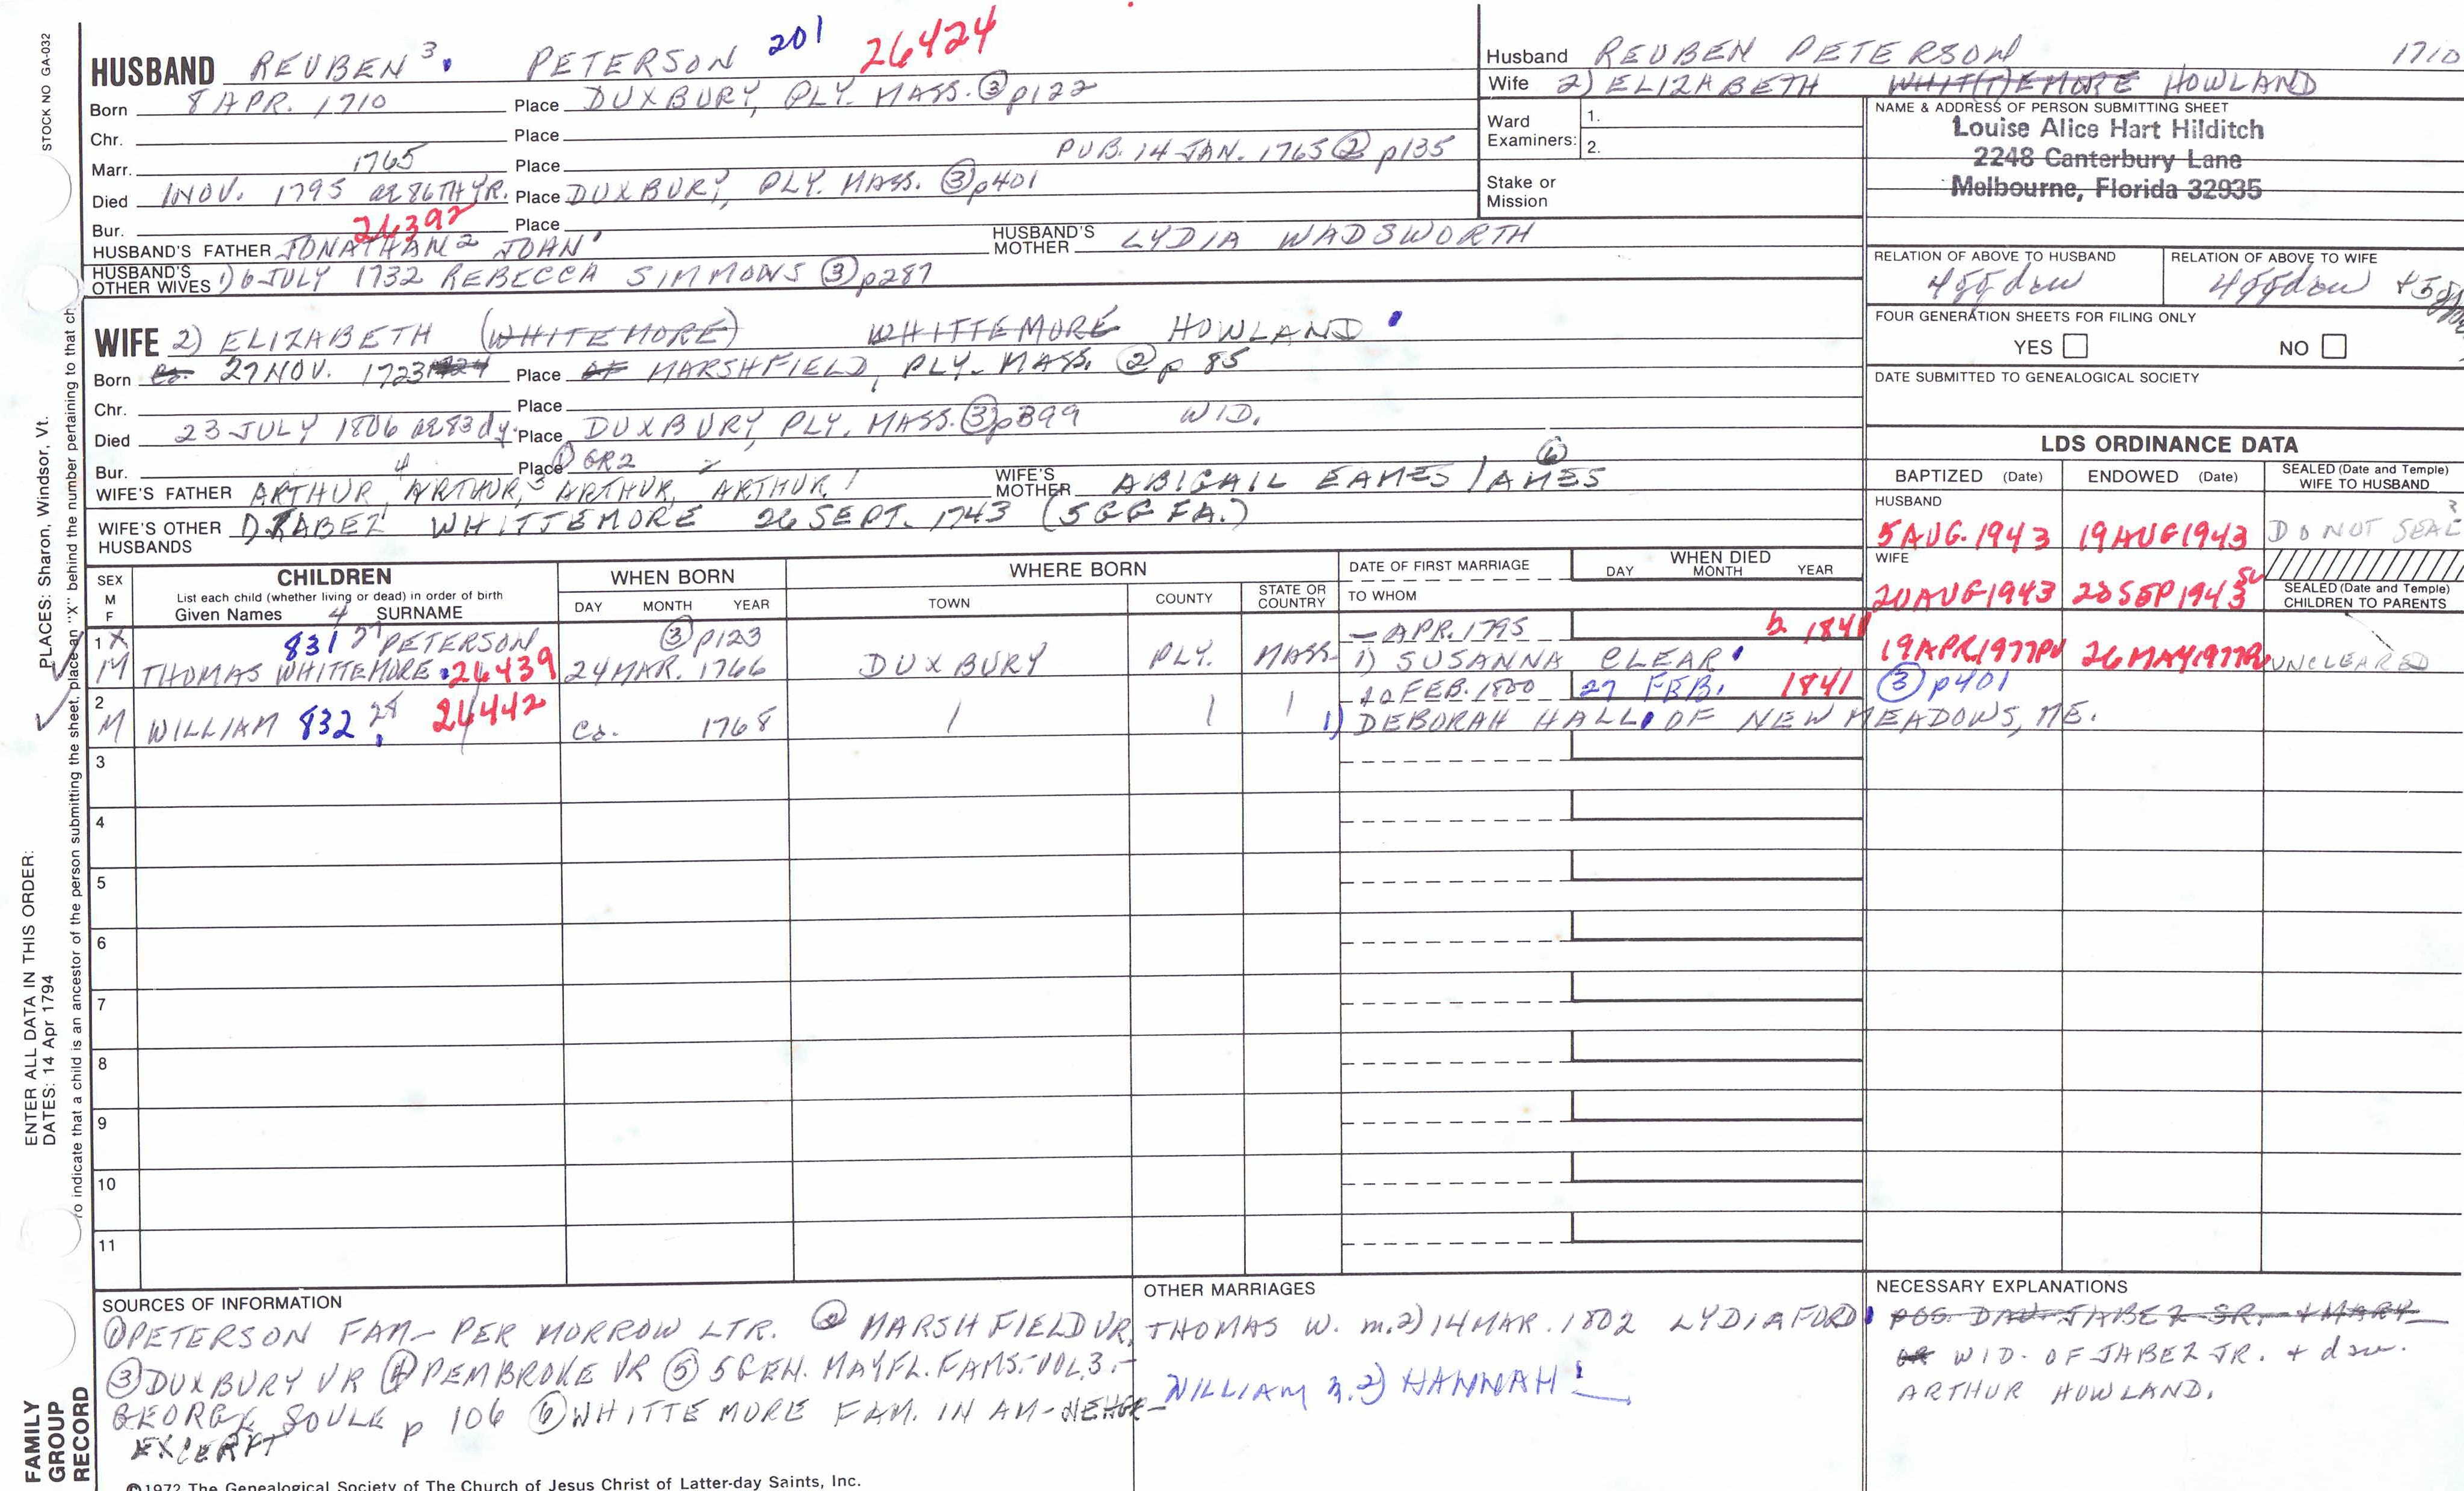 STOCK NO GA-032
HUSBAND REUBEN 3. PETERSON 201 26424
Born 8 APR. 1710 Place DUXBURY, PLY. MASS. ③ p122
Chr. Place
Marr. 1765 Place PUB. 14 JAN. 1765 ② p135
Died 1 NOV. 1795 ae 86TH YR. Place DUXBURY, PLY. MASS. ③ p401
Bur. 26392 Place
HUSBAND'S FATHER JONATHAN 2 JOHN 1 HUSBAND'S MOTHER LYDIA WADSWORTH
HUSBAND'S OTHER WIVES 1) 6 JULY 1732 REBECCA SIMMONS ③ p287
WIFE 2) ELIZABETH (WHITEMORE) WHITTEMORE HOWLAND
Born Ca. 27 NOV. 1723 1724 Place OF MARSHFIELD, PLY. MASS. ② p 85
Chr. Place
Died 23 JULY 1806 ae 83 dy. Place DUXBURY, PLY. MASS. ③ p399 WID.
Bur. Place ① GR2
WIFE'S FATHER ARTHUR, 4 ARTHUR, 3 ARTHUR, ARTHUR 1 WIFE'S MOTHER ABIGAIL EAMES / AMES ⑥
WIFE'S OTHER HUSBANDS 1) JABEZ WHITTEMORE 26 SEPT. 1743 (5GG FA.)
Husband REUBEN PETERSON 1710
Wife 2) ELIZABETH WHIT(T)EMORE HOWLAND
Ward Examiners: 1.
2.
Stake or Mission
NAME & ADDRESS OF PERSON SUBMITTING SHEET
Louise Alice Hart Hilditch
2248 Canterbury Lane
Melbourne, Florida 32935
RELATION OF ABOVE TO HUSBAND RELATION OF ABOVE TO WIFE
4ggdau 4ggdau
FOUR GENERATION SHEETS FOR FILING ONLY
YES NO
DATE SUBMITTED TO GENEALOGICAL SOCIETY
LDS ORDINANCE DATA
BAPTIZED (Date) ENDOWED (Date) SEALED (Date and Temple) WIFE TO HUSBAND
HUSBAND
5 AUG. 1943 19 AUG 1943 DO NOT SEAL
WIFE
20 AUG 1943 28 SEP 1943 SEALED (Date and Temple) CHILDREN TO PARENTS
SEX M F CHILDREN WHEN BORN WHERE BORN DATE OF FIRST MARRIAGE WHEN DIED
List each child (whether living or dead) in order of birth
Given Names 4 SURNAME DAY MONTH YEAR TOWN COUNTY STATE OR COUNTRY TO WHOM DAY MONTH YEAR
1 X 831 27 PETERSON ③ p123 — APR. 1795 b. 1840
M THOMAS WHITTEMORE 26439 24 MAR. 1766 DUXBURY PLY. MASS. 1) SUSANNA CLEAR 19 APR 1977 PV 26 MAY 1977 UNCLEARED
2 20 FEB. 1800 27 FEB. 1841 ③ p401
M WILLIAM 832 28 26442 Ca. 1768 1) DEBORAH HALL OF NEW MEADOWS, ME.
3
4
5
6
7
8
9
10
11
SOURCES OF INFORMATION
① PETERSON FAM— PER MORROW LTR. ② MARSHFIELD VR
③ DUXBURY VR ④ PEMBROKE VR ⑤ 5 GEN. MAYFL. FAMS.-VOL. 3.—
GEORGE SOULE p 106 ⑥ WHITTEMORE FAM. IN AM-NEHGR—
EXCERPT
OTHER MARRIAGES
THOMAS W. m. 2) 14 MAR. 1802 LYDIA FORD
WILLIAM m. 2) HANNAH
NECESSARY EXPLANATIONS
POS. DAU JABEZ SR. + MARY
OR WID. OF JABEZ JR. + dau.
ARTHUR HOWLAND.
©1972 The Genealogical Society of The Church of Jesus Christ of Latter-day Saints, Inc.
PLACES: Sharon, Windsor, Vt.
To indicate that a child is an ancestor of the person submitting the sheet, place an "X" behind the number pertaining to that ch
ENTER ALL DATA IN THIS ORDER:
DATES: 14 Apr 1794
FAMILY GROUP RECORD